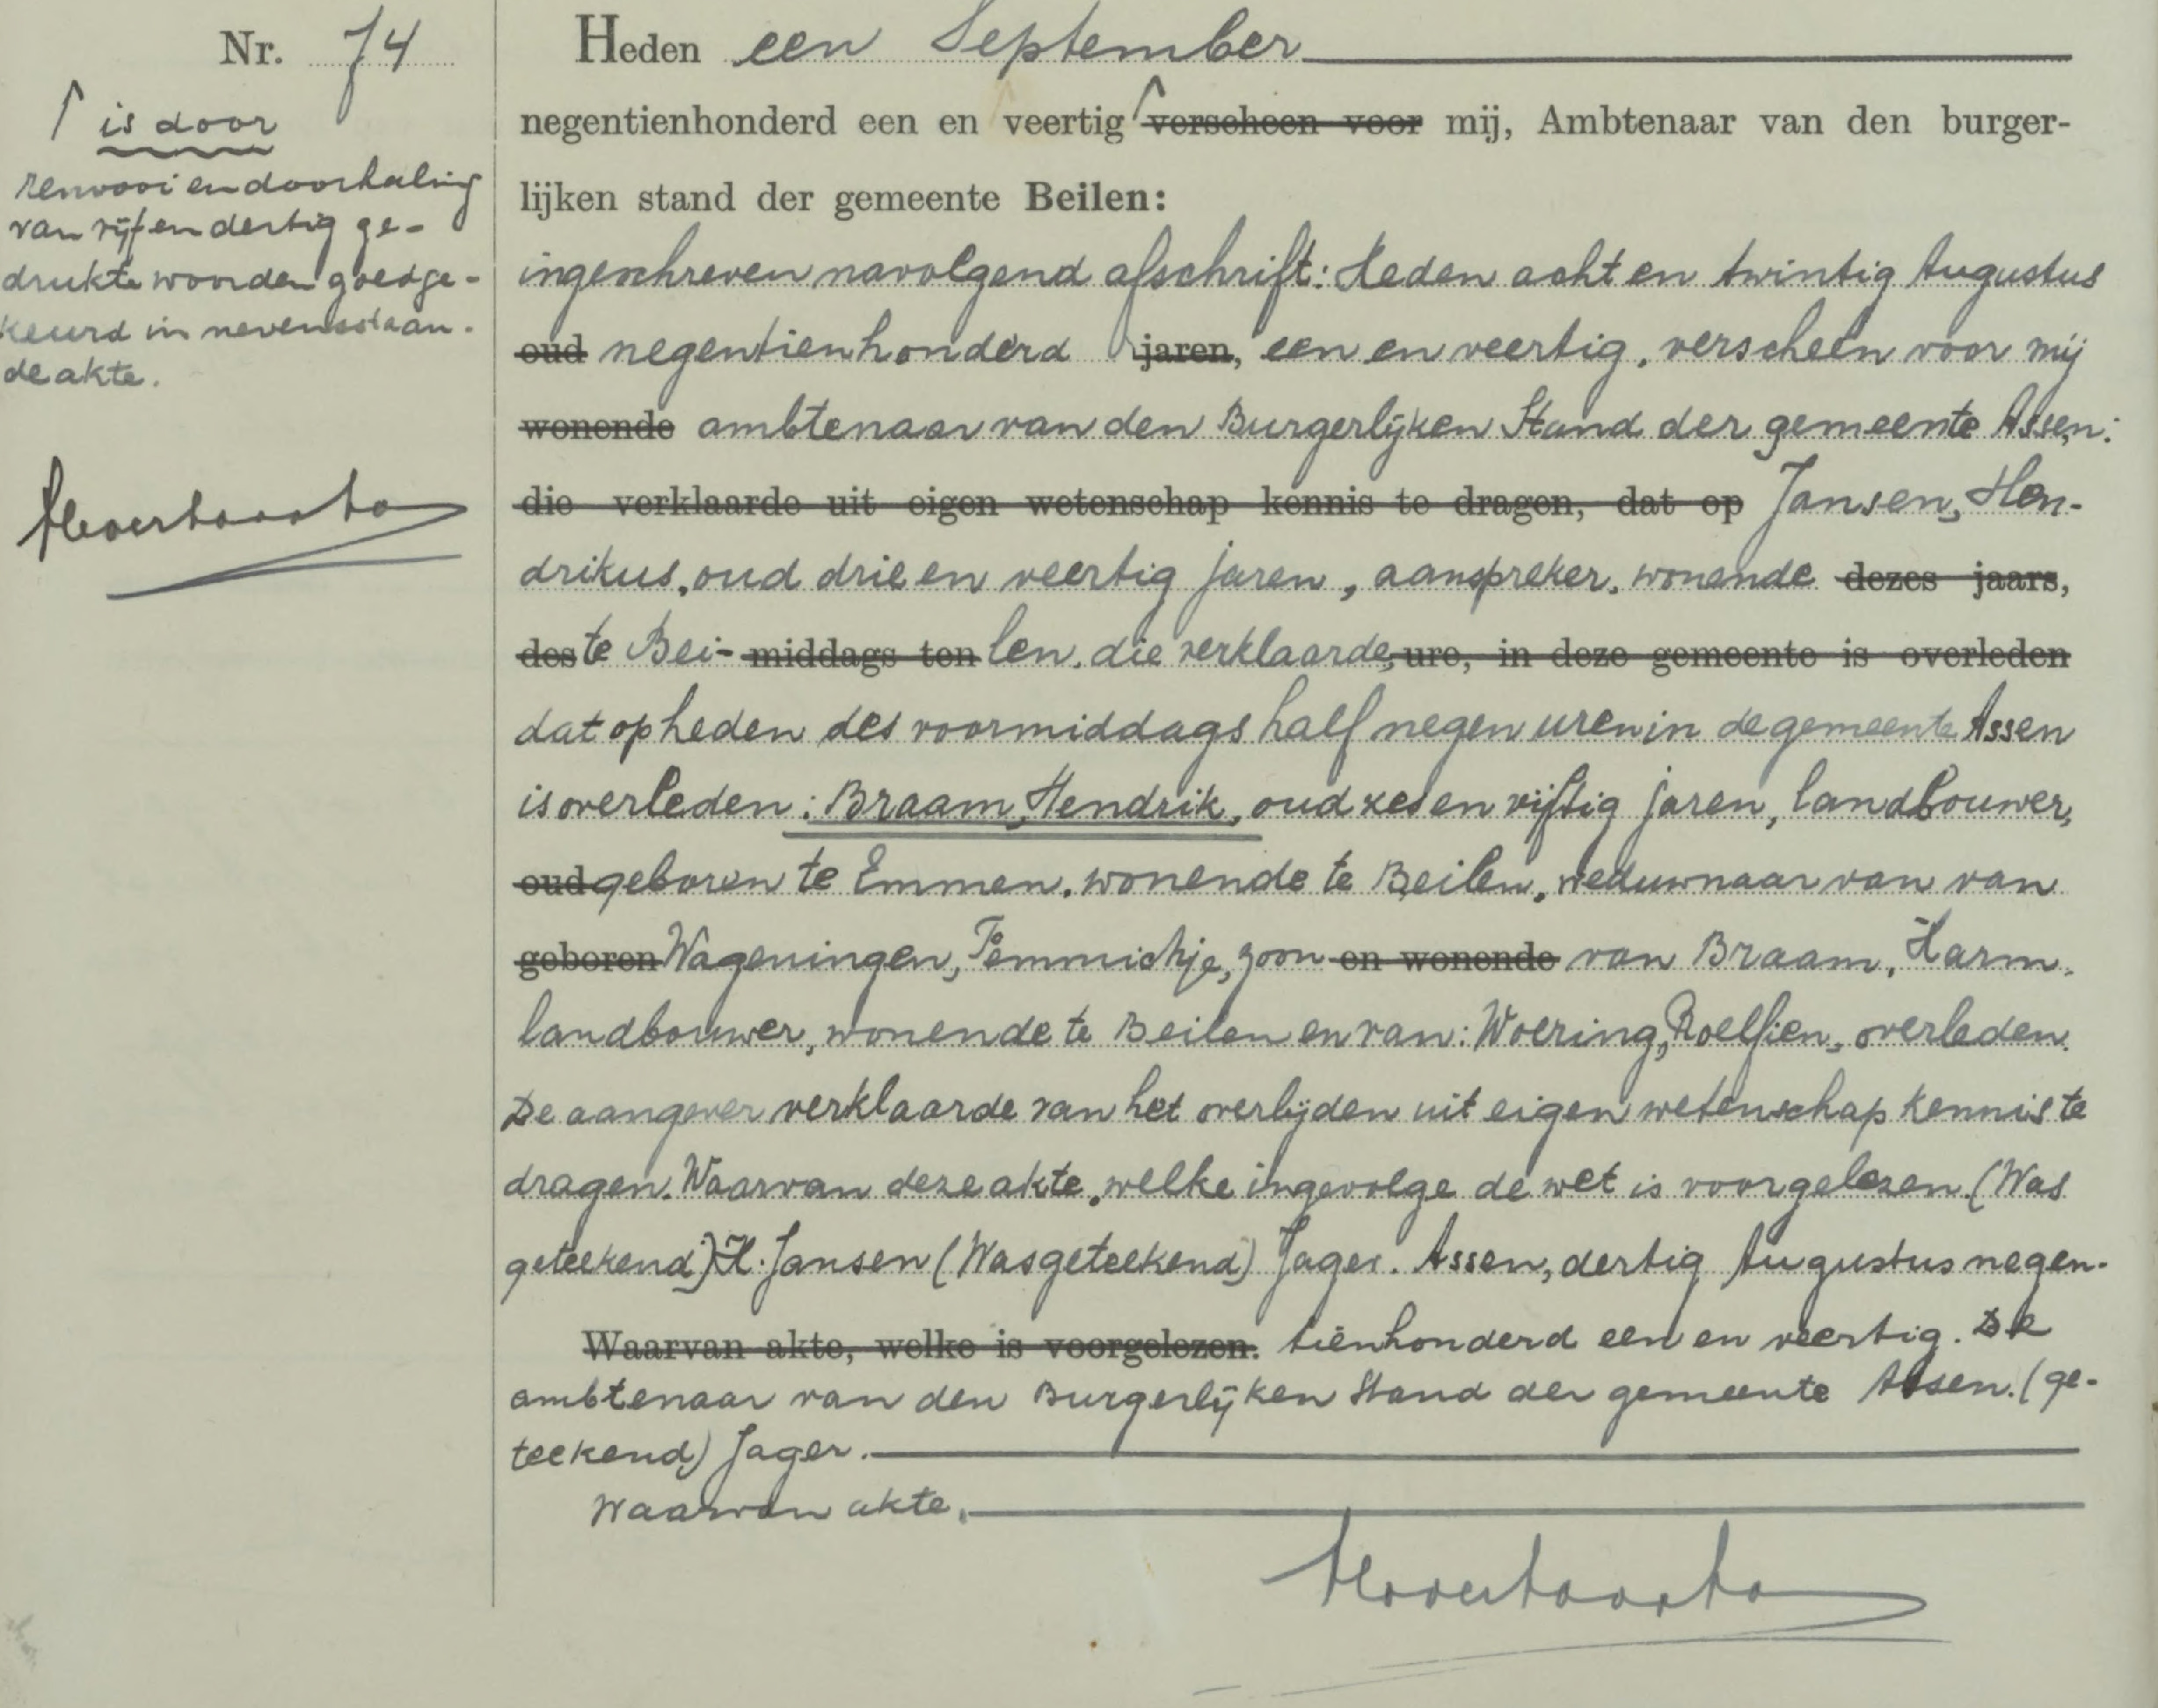 Nr. 74
↑ is door
renvooi en doorhaling
van vijf en dertig ge-
drukte woorden goedge-
keurd in nevensstaan-
de akte.
Heden een September
negentienhonderd een en veertig ↑ verscheen voor mij, Ambtenaar van den burger-
lijken stand der gemeente Beilen:
ingeschreven navolgend afschrift: Heden acht en twintig Augustus
oud negentienhonderd jaren, een en veertig, verscheen voor mij
wonende ambtenaar van den Burgerlijken Stand der gemeente Assen:
die verklaarde uit eigen wetenschap kennis te dragen, dat op Jansen, Hen-
drikus, oud drie en veertig jaren, aanspreker, wonende dezes jaars,
des te Bei- middags ten len, die verklaarde, ure, in deze gemeente is overleden
dat op heden des voormiddags half negen uren in de gemeente Assen
is overleden: Braam, Hendrik, oud zes en vijftig jaren, landbouwer,
oud geboren te Emmen, wonende te Beilen, weduwnaar van van
geboren Wageningen, Femmichje, zoon en wonende van Braam, Harm,
landbouwer, wonende te Beilen en van: Woering, Roelfien, overleden.
De aangever verklaarde van het overlijden uit eigen wetenschap kennis te
dragen. Waarvan deze akte, welke ingevolge de wet is voorgelezen. (Was
geteekend) H. Jansen (Was geteekend) Jager. Assen, dertig Augustus negen-
Waarvan akte, welke is voorgelezen. tienhonderd een en veertig. De
ambtenaar van den Burgerlijken Stand der gemeente Assen. (ge-
teekend) Jager.
Waarvan akte.